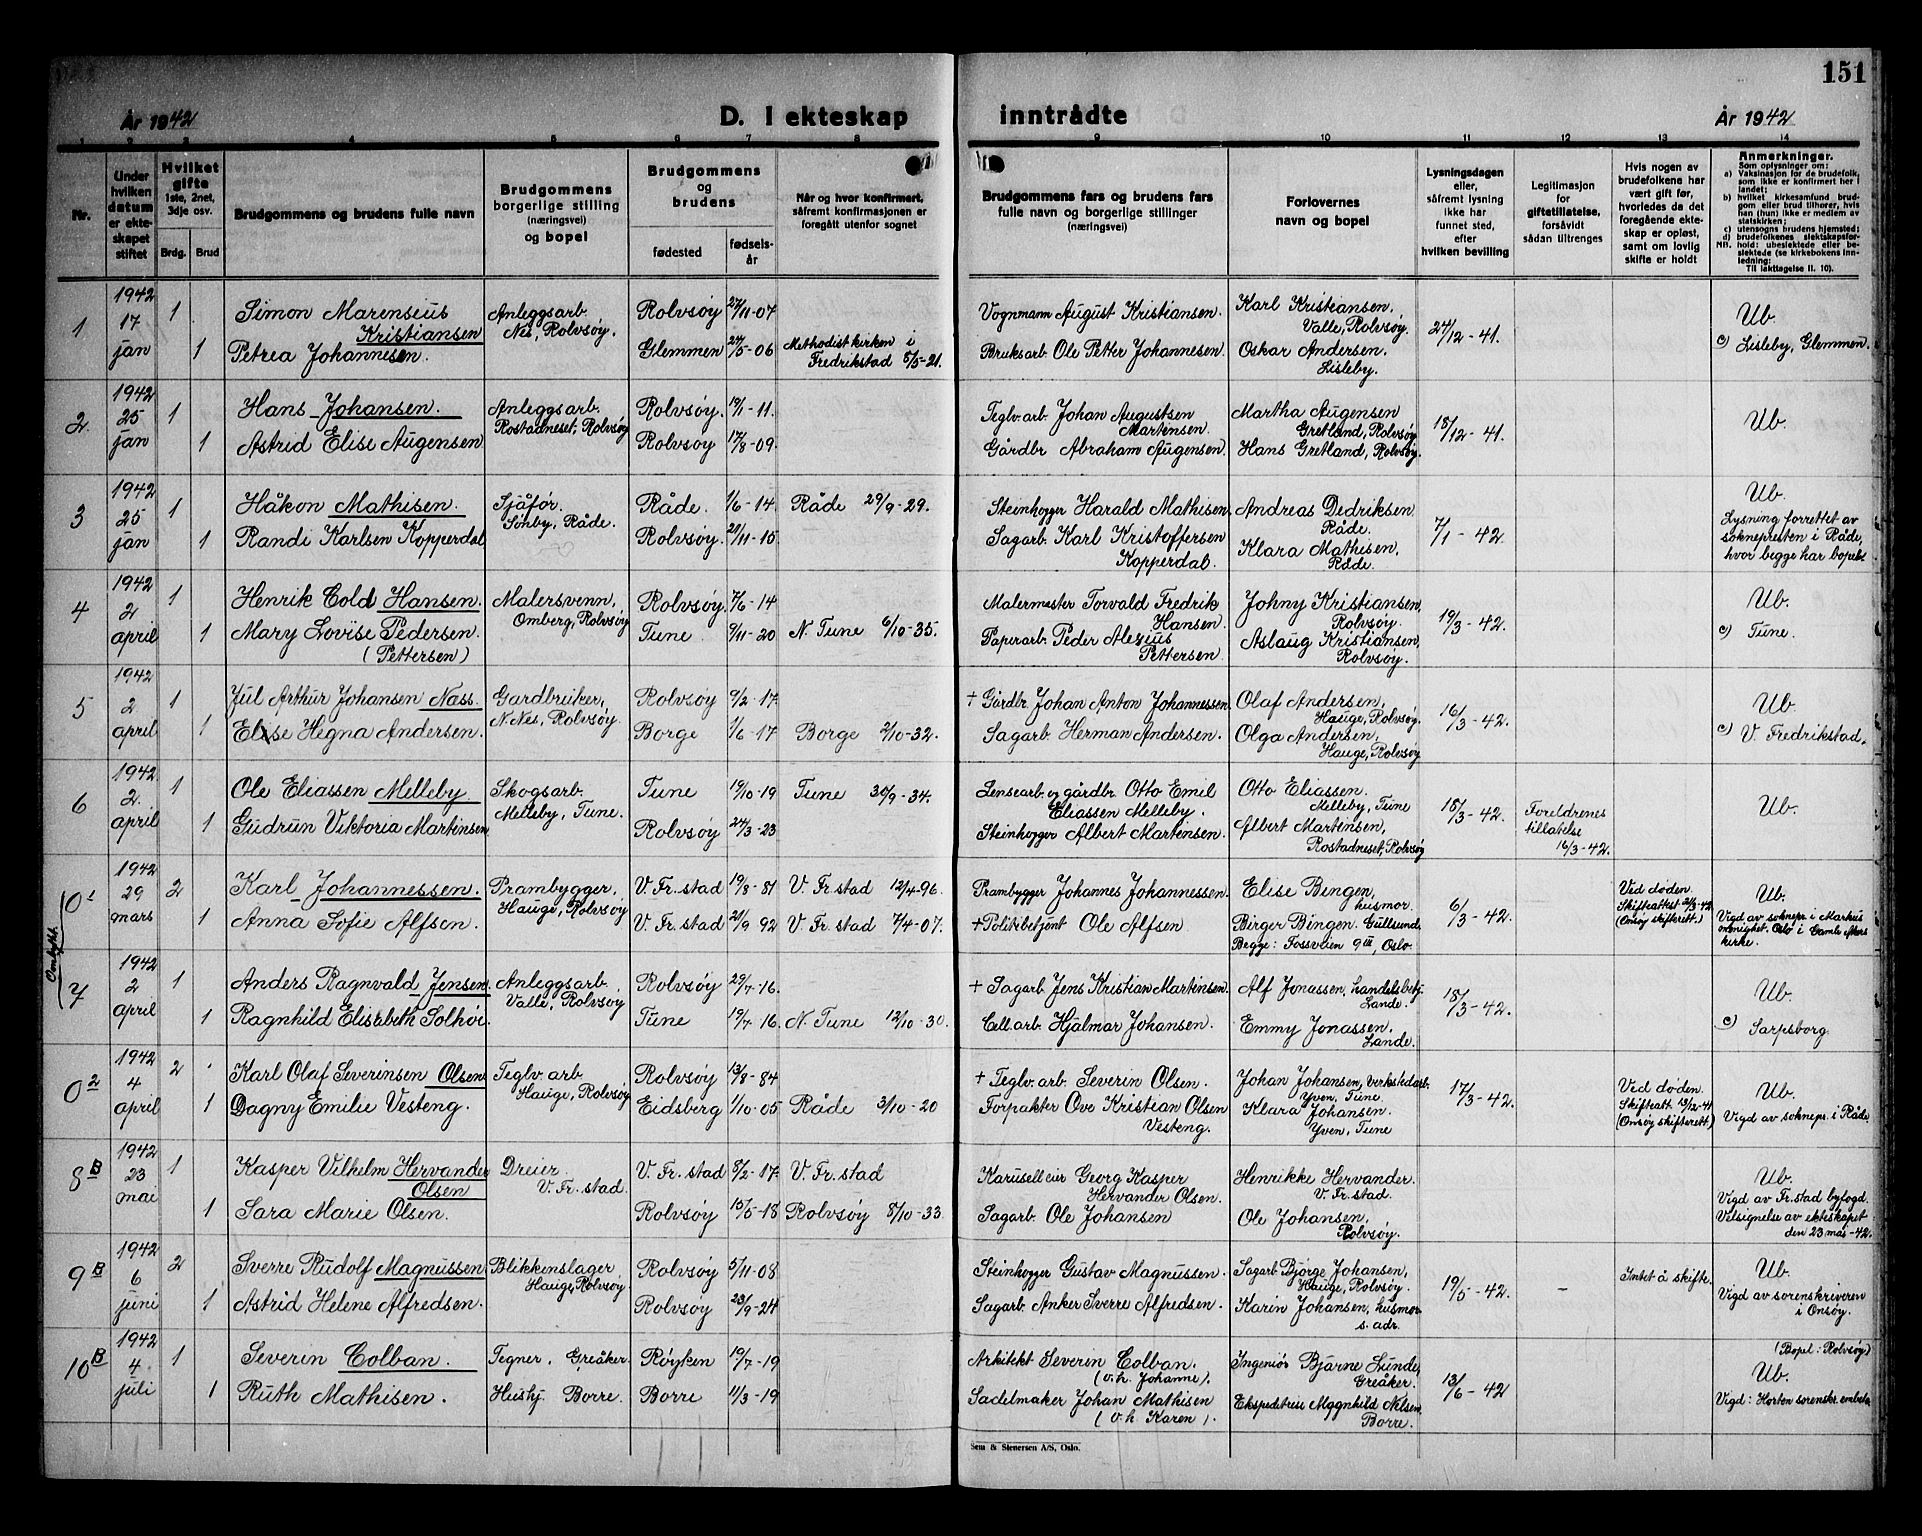 151
År 1942
D. I ekteskap
inntrådte
År 1942
1 2 3 4 5 6 7 8
9 10 11 12 13 14
Nr.
Under hvilken datum er ekteskapet stiftet
Hvilket gifte 1ste, 2net, 3dje osv.
Brdg. Brud
Brudgommens og brudens fulle navn
Brudgommens borgerlige stilling (næringsvei) og bopel
Brudgommens og brudens
fødested
fødselsår
Når og hvor konfirmert, såfremt konfirmasjonen er foregått utenfor sognet
Brudgommens fars og brudens fars fulle navn og borgerlige stillinger (næringsvei)
Forlovernes navn og bopel
Lysningsdagen eller, såfremt lysning ikke har funnet sted, efter hvilken bevilling
Legitimasjon for giftetillatelse, forsåvidt sådan tiltrenges
Hvis nogen av brudefolkene har vært gift før, hvorledes da det foregående ekteskap er opløst, samt om lovlig skifte er holdt
Anmerkninger.
Som oplysninger om:
a) Vaksinasjon for de brudefolk, som ikke er konfirmert her i landet;
b) hvilket kirkesamfund brudgom eller brud tilhører, hvis han (hun) ikke er medlem av statskirken;
c) utensogns brudens hjemsted;
d) brudefolkenes slektskapsforhold: ubeslektede eller beslektede (se kirkebokens innledning:
NB.
Til iakttagelse II. 10).
1 1942 17 jan 1 Simon Marenseus Kristiansen Anleggsarb. Nes, Rolvsøy. Rolvsøy 27/11-07 Vognmann August Kristiansen. Karl Kristiansen, Valle, Rolvsøy. 24/12-41. Ub.
1 Petrea Johannesen. Glemmen 24/5-06 Methodistkirken i Fredrikstad 8/5-21. Bruksarb. Ole Petter Johannesen Oskar Andersen. Lisleby. c) Lisleby, Glemmen.
2. 1942 25 jan 1 Hans Johansen. Anleggsarb. Rostadneset, Rolvsøy Rolvsøy. 19/1-11. Teglv.arb. Johan Augustsen Martensen. Martha Augensen Gretland, Rolvsøy 18/12-41. Ub.
1 Astrid Elise Augensen Rolvsøy 17/8-09. Gårdbr Abraham Augensen. Hans Gretland, Rolvsøy.
3 1942 25 jan 1 Håkon Mathisen. Sjåfør. Sonby, Råde. Råde. 1/6-14 Råde 29/9-29. Steinhogger Harald Mathisen. Andreas Dedriksen Råde. 7/1-42. Ub.
1 Randi Karlsen Kopperdal Rolvsøy. 20/11-15 Sagarb. Karl Kristoffersen Kopperdal. Klara Mathisen, Råde. Lysning forrettet av sokneprosten i Råde, hvor begge har bopel.
4 1942 2 april 1 Henrik Cold Hansen. Malersvenn, Omberg, Rolvsøy Rolvsøy. 7/6-14 Malermester Torvald Fredrik Hansen. Johny Kristiansen, Rolvsøy. 19/3-42. Ub.
1 Mary Lovise Pedersen. (Pettersen) Tune. 9/11-20 N. Tune 6/10-35. Papirarb. Peder Alexius Pettersen Aslaug Kristiansen, Rolvsøy. c) Tune.
5 1942 2 april 1 Jul Arthur Johansen Nass. Gardbruker, N.Nes, Rolvsøy. Rolvsøy 9/2-17 + Gårdbr. Johan Anton Johannessen. Olaf Andersen, Hauge, Rolvsøy. 16/3-42. Ub.
1 Elise Hegna Andersen. Borge 1/6-17 Borge 2/10-32. Sagarb. Herman Andersen. Olga Andersen, Hauge, Rolvsøy c) V. Fredrikstad.
6 1942 2. april 1 Ole Eliassen Melleby. Skogsarb. Melleby, Tune. Tune 19/10-19 Tune 30/9-34. Lensearb. og gårdbr. Otto Emil Eliassen Melleby. Otto Eliassen. Melleby, Tune 18/3-42. Foreldrenes tillatelse 16/3-42. Ub.
1 Gudrun Viktoria Martensen Rolvsøy. 24/3-23 Steinhogger Albert Martensen. Albert Martensen, Rostadneset, Rolvsøy
Ombyttet.
0¹ 1942 29 mars 2 Karl Johannessen. Prambygger, Hauge, Rolvsøy V. Fr.stad 19/8-81 V. Fr.stad 12/4-96. Prambygger Johannes Johannessen. Elise Bingen, husmor. 6/3-42. Ved døden. Skifteattest 2/3-42 (Onsøy skifterett.) Ub.
1 Anna Sofie Alfsen. V. Fr.stad 21/9 92 V. Fr.stad 7/4-07. + Politibetjent Ole Alfsen Birger Bingen. Gullsund. Begge: Fossveien 9 III, Oslo. Vigd av soknepr. i Markus menighet. Oslo i Gamle Akers kirke.
7 1942 2 april 1 Anders Ragnvald Jensen. Anleggsarb. Valle, Rolvsøy Rolvsøy 29/7-16. + Sagarb. Jens Kristian Martinsen. Alf Jonassen, handelsbetj. Lande. 18/3-42. Ub.
1 Ragnhild Elisabeth Solhøi. Tune 19/7-16. N. Tune 12/10-30. Cell.arb. Hjalmar Johansen. Emmy Jonassen. Lande. c) Sarpsborg.
0² 1942 4 april 2 Karl Olaf Severinsen Olsen Teglv. arb Hauge, Rolvsøy Rolvsøy 13/8-84 + Teglv.arb. Severin Olsen. Johan Johansen, verkstedarb. Yven, Tune. 17/3-42. Ved døden. Skifteatt. 13/12-41 (Onsøy skifterett.) Ub.
1 Dagny Emilie Vesteng. Eidsberg 1/10-05 Råde 3/10-20 Forpakter Ove Kristian Olsen Vesteng. Klara Johansen. Yven, Tune Vigd av soknepr. i Råde.
8 B 1942 23 mai 1 Kasper Vilhelm Hervander Olsen Dreier. V. Fr.stad. V. Fr.stad 8/2-17. V. Fr.stad Karuselleier Georg Kasper Hervander Olsen. Henrikke Hervander. V. Fr.stad. Ub.
1 Sara Marie Olsen. Rolvsøy 15/5-18 Rolvsøy 8/10-33. Sagarb. Ole Johansen Ole Johansen, Rolvsøy. Vigd av Fr.stad byfogd. Velsignelse av ekteskapet den 23 mai -42.
9 B 1942 6 juni 2 Sverre Rudolf Magnussen Blikkenslager Hauge, Rolvsøy Rolvsøy 5/11-08 Steinhogger Gustav Magnussen. Sagarb. Bjørge Johansen, Hauge, Rolvsøy. 19/5-42. – Intet å skifte. Ub.
1 Astrid Helene Alfredsen. Rolvsøy 23/9-24 Sagarb. Anker Sverre Alfredsen. Karin Johansen, husmor s. adr. Vigd av sorenskriveren i Onsøy.
10 B 1942 4 juli 1 Severin Colban. Tegner, Greåker. Røyken 19/7-19 Arkitekt Severin Colban. (o.h. Johanne). Ingeniør Bjarne Lunde, Greåker. 13/6-42 (Bopel: Rolvsøy) Ub.
1 Ruth Mathisen. Borre. Borre 11/3-19 Sadelmaker Johan Mathisen (o.h. Karen). Nilsen, Borre. Vigd: Horten sorenskr.
Sem & Stenersen A/S, Oslo.